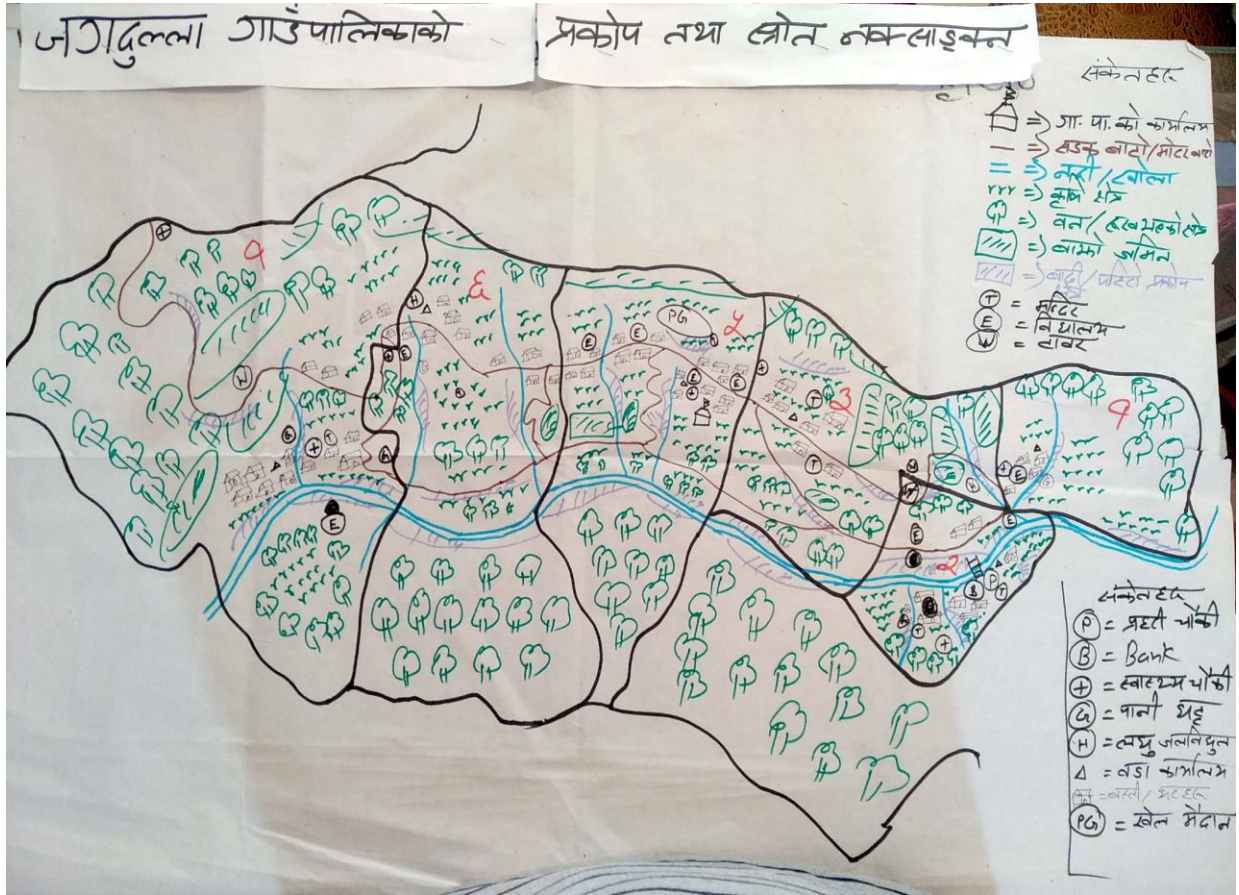 जगदुल्ला गाउँपालिकाको प्रकोप तथा स्रोत नक्साङ्कन
संकेतहरु
=> गा. पा. को कार्यालय
=> सडक बाटो/मोटरबाटो
=> नदी/खोला
=> कृषि क्षेत्र
=> वन/
=> बाझो जमिन
=> बाढी/पहिरो प्रकोप
T = मन्दिर
E = विद्यालय
W = टावर
१
६
५
३
१
२
PG
H
E
W
T
G
P
B
संकेतहरु
P = प्रहरी चौकी
B = Bank
= स्वास्थ्य चौकी
G = पानी घट्ट
H = लघु जलविद्युत
Δ = वडा कार्यालय
= बस्ती/घरहरु
PG = खेल मैदान